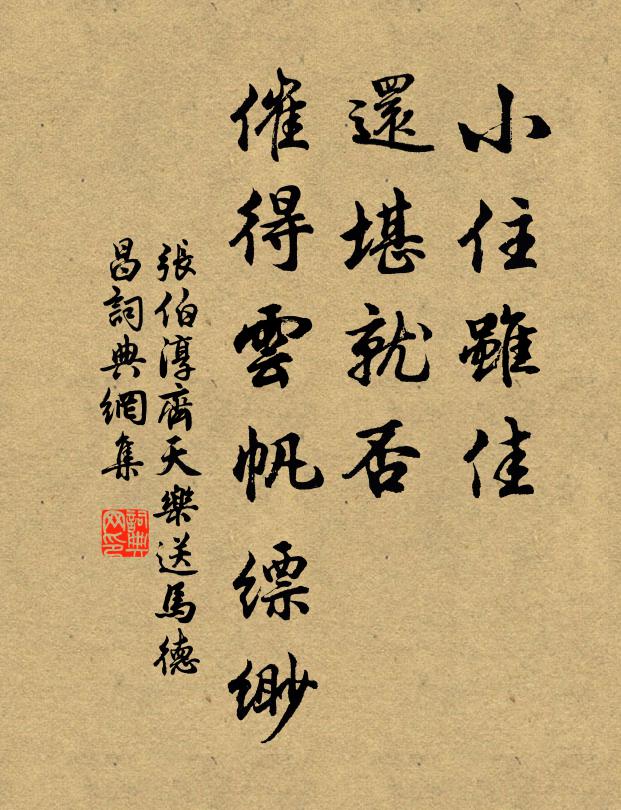 小住雖佳
還堪就否
催得雲帆縹緲
張伯淳齊天樂送馬德
昌詞典網集
詞典
网印